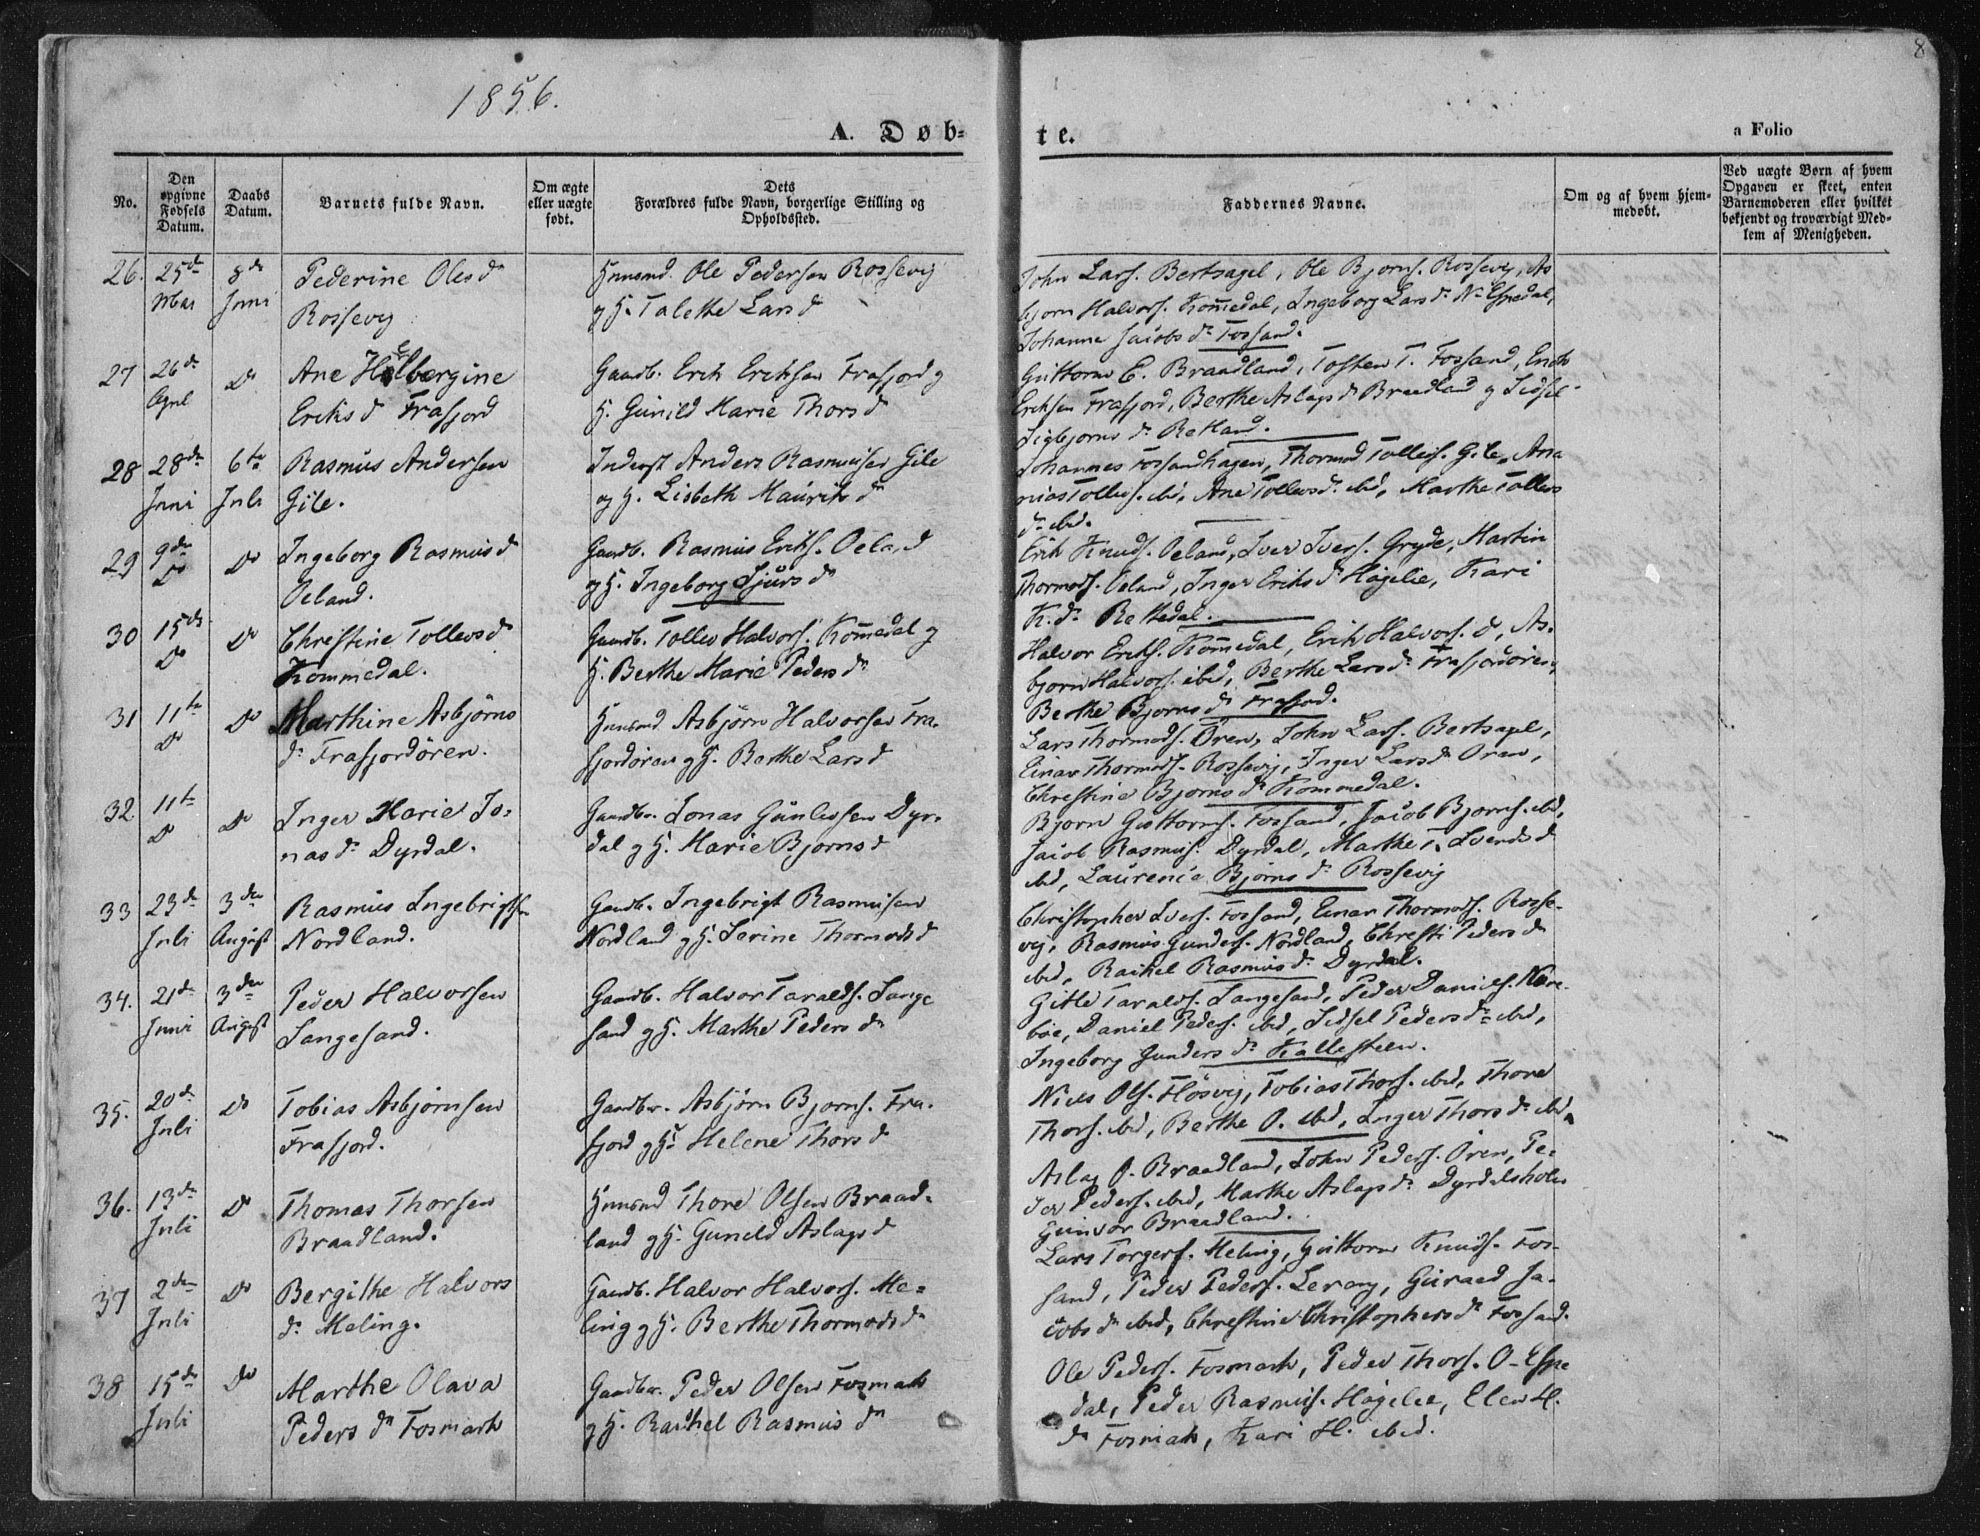 8
1856.
A. Døb=
te.
a Folio
No.
Den opgivne Fødsels Datum.
Daabs Datum.
Barnets fulde Navn.
Om ægte eller uægte født.
Dets Forældres fulde Navn, borgerlige Stilling og Opholdssted.
Faddernes Navne.
Om og af hvem hjemmedøbt.
Ved uægte Børn af hvem Opgaven er skeet, enten Barnemoderen eller hvilket bekjendt og troværdigt Medlem af Menigheden.
26. 25de Mai
8de Juni
Pederine Olesd
Rossevig
Huusmd Ole Pedersen Rossevig
og H. Talette Larsd
John Lars. Bertsagel, Ole Bjorns. Rossevig, As
bjorn Halvors. Kom̄edal, Ingeborg Larsdr. N. Espedal,
Johanne Jacobsdr. Fossand.
27 26de April
Do
Ane Helbergine
Eriksd Frafjord
Gaardb. Erik Eriksen Frafjord og
H. Gunild Marie Thorsd
Guttorm E. Braadland, Tosten T. Fossand, Erik
Eriksen Frafjord, Berthe Aslagsd Braadland og Sidsel
Sigbjornsdr. Retland.
28 28de Juni
6te Juli
Rasmus Andersen
Gile.
Inderst Anders Rasmusen Gile
og H. Lisbeth Mauritsdr
Johannes Fossandhagen, Thormod Tollefs. Gile, Ana
nias Tollevs. ibid, Ane Tollevsd. ibid, Marthe Tollevs
dr ibid.
29 9de Do
Do
Ingeborg Rasmusd
Oeland.
Gaardb. Rasmus Eriks. Oeland
og H. Ingeborg Sjursd
Erik Knuds. Oeland, Iver Ivers. Gryde, Martin
Thormods. Oeland, Inger Eriksd Høgelie, Kari
K.dr. Rettedal.
30 15de Do
Do
Christine Tollevsd
Kommedal.
Gaardb. Tollev Halvors. Kom̄edal og
H. Berthe Marie Pedersdr
Halvor Eriks. Kom̄edal, Erik Halvors. do, As-
bjorn Halvors. ibid, Berthe Larsdr. Frafjordøren,
Berthe Bjornsdr. Frafjord.
31 11te Do
Do
Marthine Asbjørns
dr. Frafjordören.
Huusmd Asbjørn Halvorsen Fra-
fjordøren og H. Berthe Larsd
Lars Thormods. Ören, John Lars. Bertsagel,
Einar Thormods. Rossevig, Inger Larsdr. Oren,
Christine Bjornsdr. Kommedal.
32 11te Do
Do
Inger Marie Jo-
nasdr. Dyrdal.
Gaardbr. Jonas Gunlevsen Dyr-
dal og H. Marie Bjornsd
Bjorn Guttorms. Fossand, Jacob Bjorns. ibid,
Jacob Rasmus. Dyrdal, Marthe T. Svendsd
ibid, Laurence Bjørnsdr. Rossevig
33 23de Juli
3den August
Rasmus Ingebrigtsen
Nordland.
Gaardb. Ingebrigt Rasmusen
Nordland og H. Serine Thormodsd
Christopher Ivers. Fossand, Einar Thormods. Rosse-
vig, Rasmus Gunders. Nordland, Christi Pedersdr
ibid, Rachel Rasmusdr. Dyrdal.
34. 21de Juni
3den August
Peder Halvorsen
Langesand.
Gaardb. Halvor Taralds. Lange
sand og H. Marthe Pedersdr
Gitle Taralds. Langesand, Peder Daniels. Nøre-
bøe, Daniel Peders. ibid, Sidsel Pedersdr ibid,
Ingeborg Gundersdr. Kallesteen.
35. 20de Juli
Do
Tobias Asbjørnsen
Frafjord.
Gaardbr. Asbjørn Bjorns. Fra-
fjord og H. Helene Thorsd
Niels Ols. Fløsvig, Tobias Thors. ibid, Thore
Thors. ibid, Berthe O. ibid, Inger Thorsdr ibid
36. 13de Juli
Do
Thomas Thorsen
Braadland.
Huusmd Thore Olsen Braad-
land og H. Guneld Aslagsd
Aslag O. Braadland, John Peders. Ören, Pe-
der Peders. ibid, Marthe Aslagsdr. Dyrdalsholen
Gunvor Braadland.
37 2den Juli
Do
Bergithe Halvors
dr. Meling.
Gaardb. Halvor Halvors. Me-
ling og H. Berthe Thormodsdr
Lars Torgers. Meling, Guttorm Knuds. Fos-
sand, Peder Peders. Lerang, Guraad Ja-
cobsdr ibid, Christine Christophersdr Fossand.
38 15de Juli
Do
Marthe Olava
Pedersdr Fosmark
Gaardbr. Peder Olsen Fosmark
og H. Rachel Rasmusdr
Ole Peders. Fosmark, Peder Thors. O-Espe
dal, Peder Rasmus. Høgelie, Elen H.
dr Fosmark, Kari H. ibid.